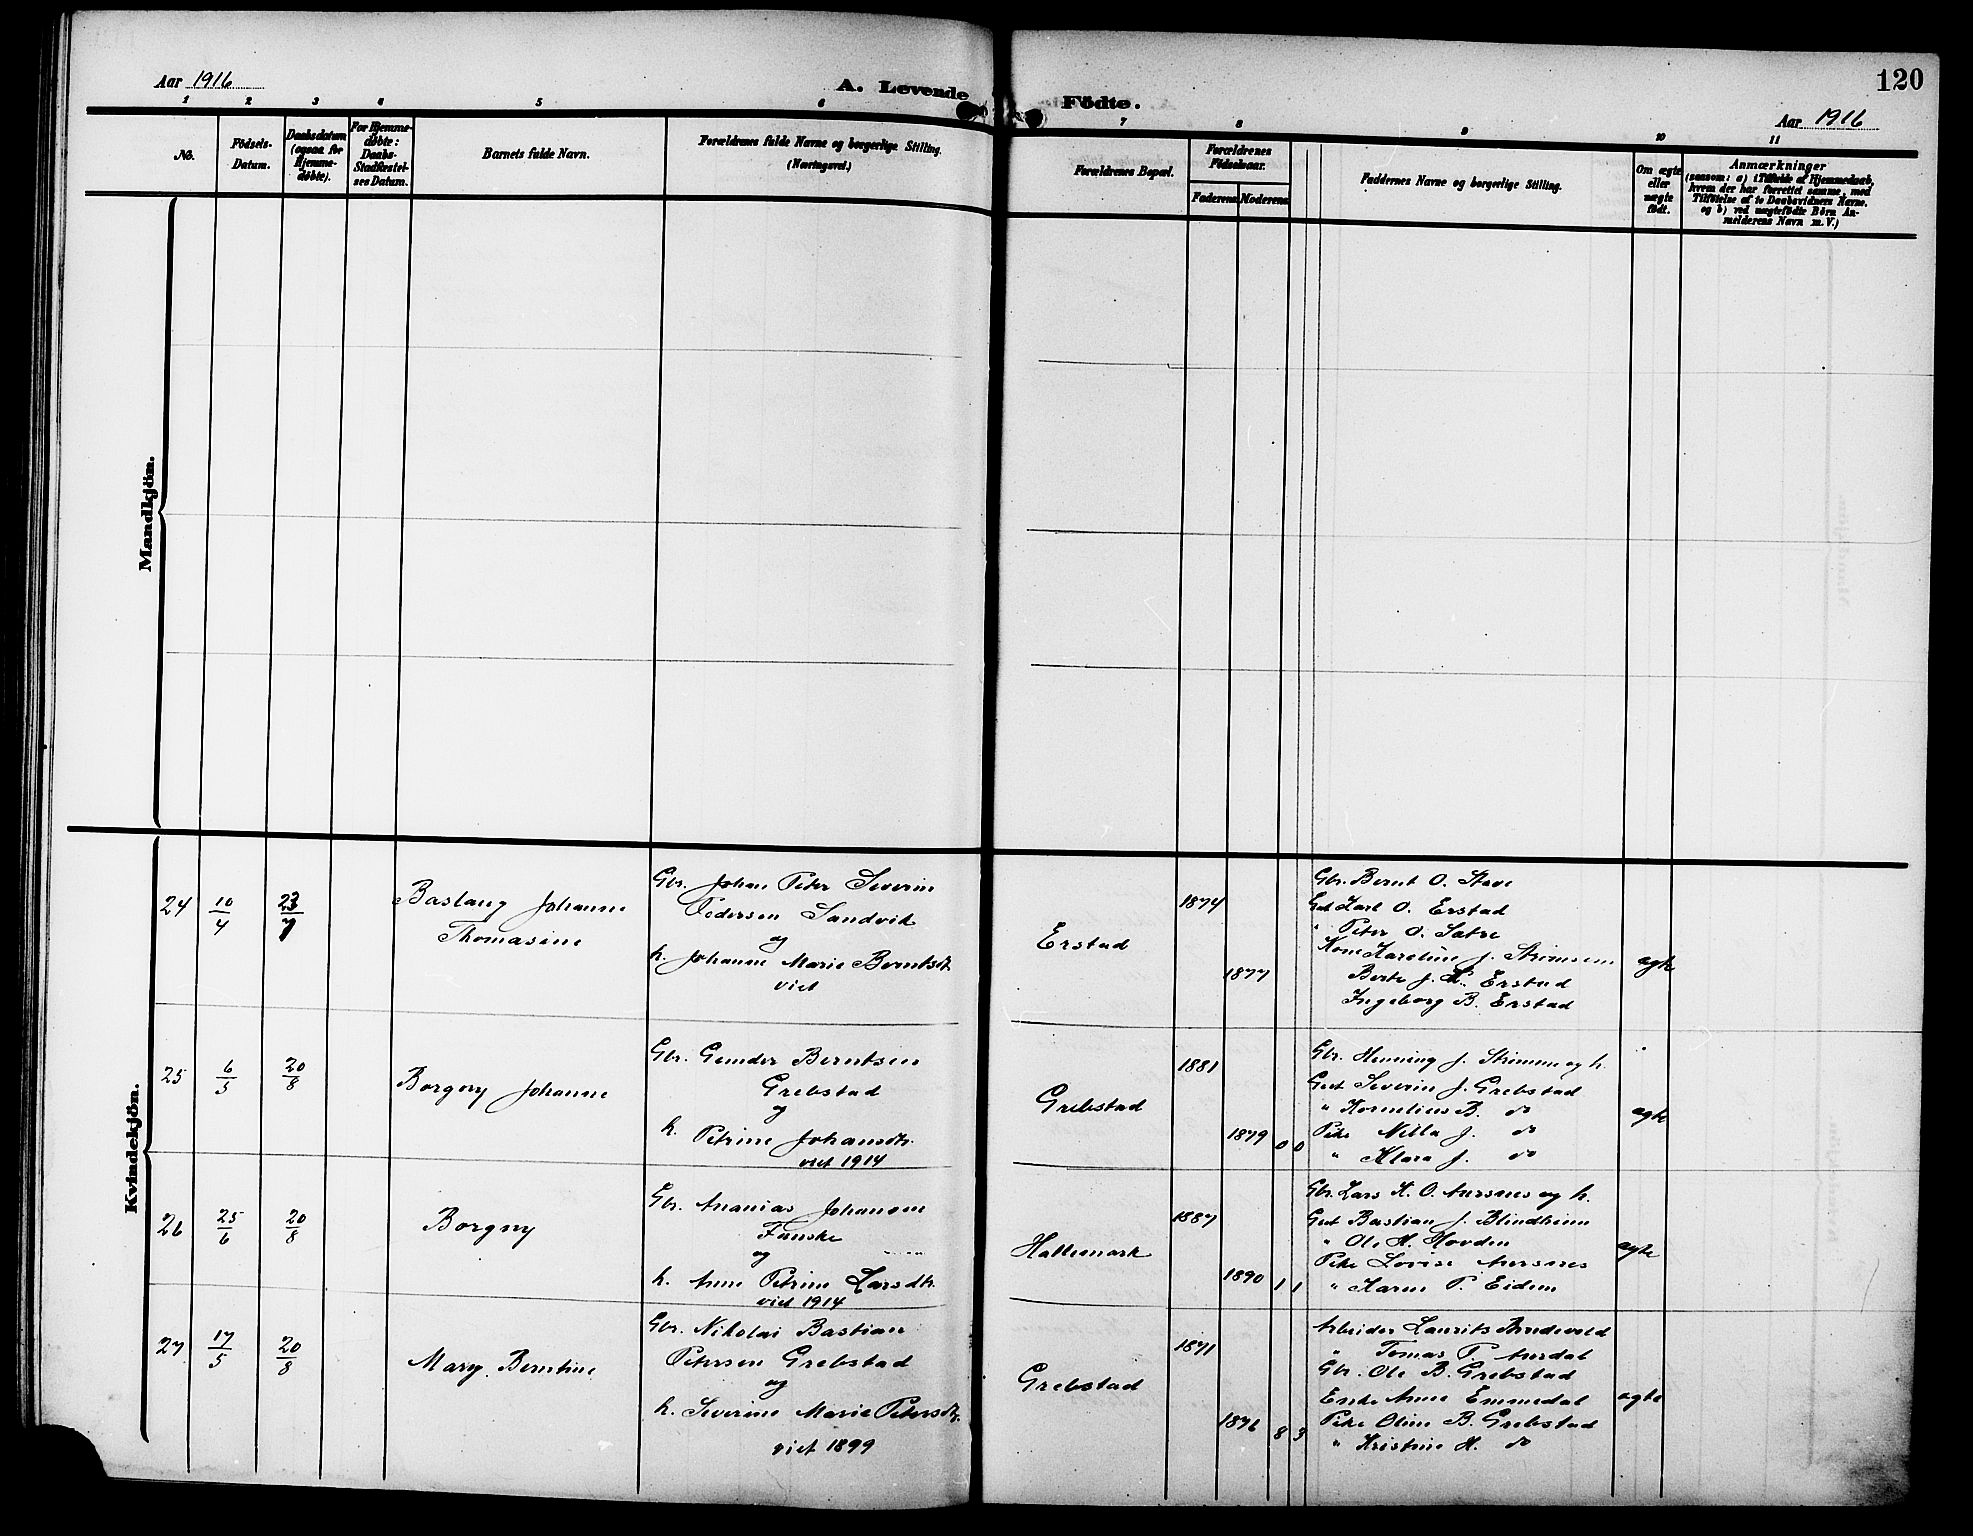 Aar 1916
A. Levende
Födte.
120
Aar 1916
1 2 3 4 5 6 7 8 9 10 11
No.
Födsels-
Datum.
Daabsdatum
(ogsaa for
Hjemme-
døbte).
For Hjemme-
døbte:
Daabs-
Stadfæstel-
ses Datum.
Barnets fulde Navn.
Forældrenes fulde Navne og borgerlige Stilling.
(Næringsvei.)
Forældrenes Bopæl.
Forældrenes
Födselsaar.
Faderens Moderens
Faddernes Navne og borgerlige Stilling.
Om ægte
eller
uægte
födt.
Anmærkninger
(saasom: a) i Tilfælde af Hjemmedaab,
hvem der har forrettet samme, med
Tilföielse af to Daabsvidners Navne.
og b) ved uægtefödte Börn An-
melderens Navn m. V.)
Mandkjön.
Kvindekjön.
24
10/4
23/7
Baslaug Johanne
Thomasine
Gbr. Johan Peter Severin
Pedersen Sandvik
og
h. Johanne Marie Berntsdt.
viet
Erstad
1874
1877
Gbr. Bernt O. Stave
Gut Karl O. Erstad
" Peter O. Sætre
Kone Karoline J. Strømsem
Berte J. K. Erstad
Ingeborg B. Erstad
ægte
25
6/5
20/8
Borgny Johanne
Gbr. Gunder Berntsen
Grebstad
og
h. Petrine Johansdtr.
viet 1914
Grebstad
1881
1879
0 0
Gbr. Henning J. Strømme og h.
Gut Severin J. Grebstad
" Kornelius B. do
Pike Nilla J. do
" Klara J. do
ægte
26
25/6
20/8
Borgny
Gbr. Ananias Johansen
Fauske
og
h. Anne Petrine Larsdtr.
viet 1914
Hallemark
1887
1890
1 1
Gbr. Lars K. O. Aursnes og h.
Gut Bastian J. Blindheim
" Ole H. Hovden
Pike Lovise Aursnes
" Karen P. Eidem
ægte
27
17/5
20/8
Mary Berntine
Gbr. Nikolai Bastian
Petersen Grebstad
og
h. Severine Marie Petersdtr.
viet 1899
Grebstad
1871
1876
8 3
Arbeider Laurits Brudevold
" Tomas P. Aurdal
Gbr. Ole B. Grebstad
Enke Anne Emmedal
Pike Oline B. Grebstad
" Kristine H. do
ægte